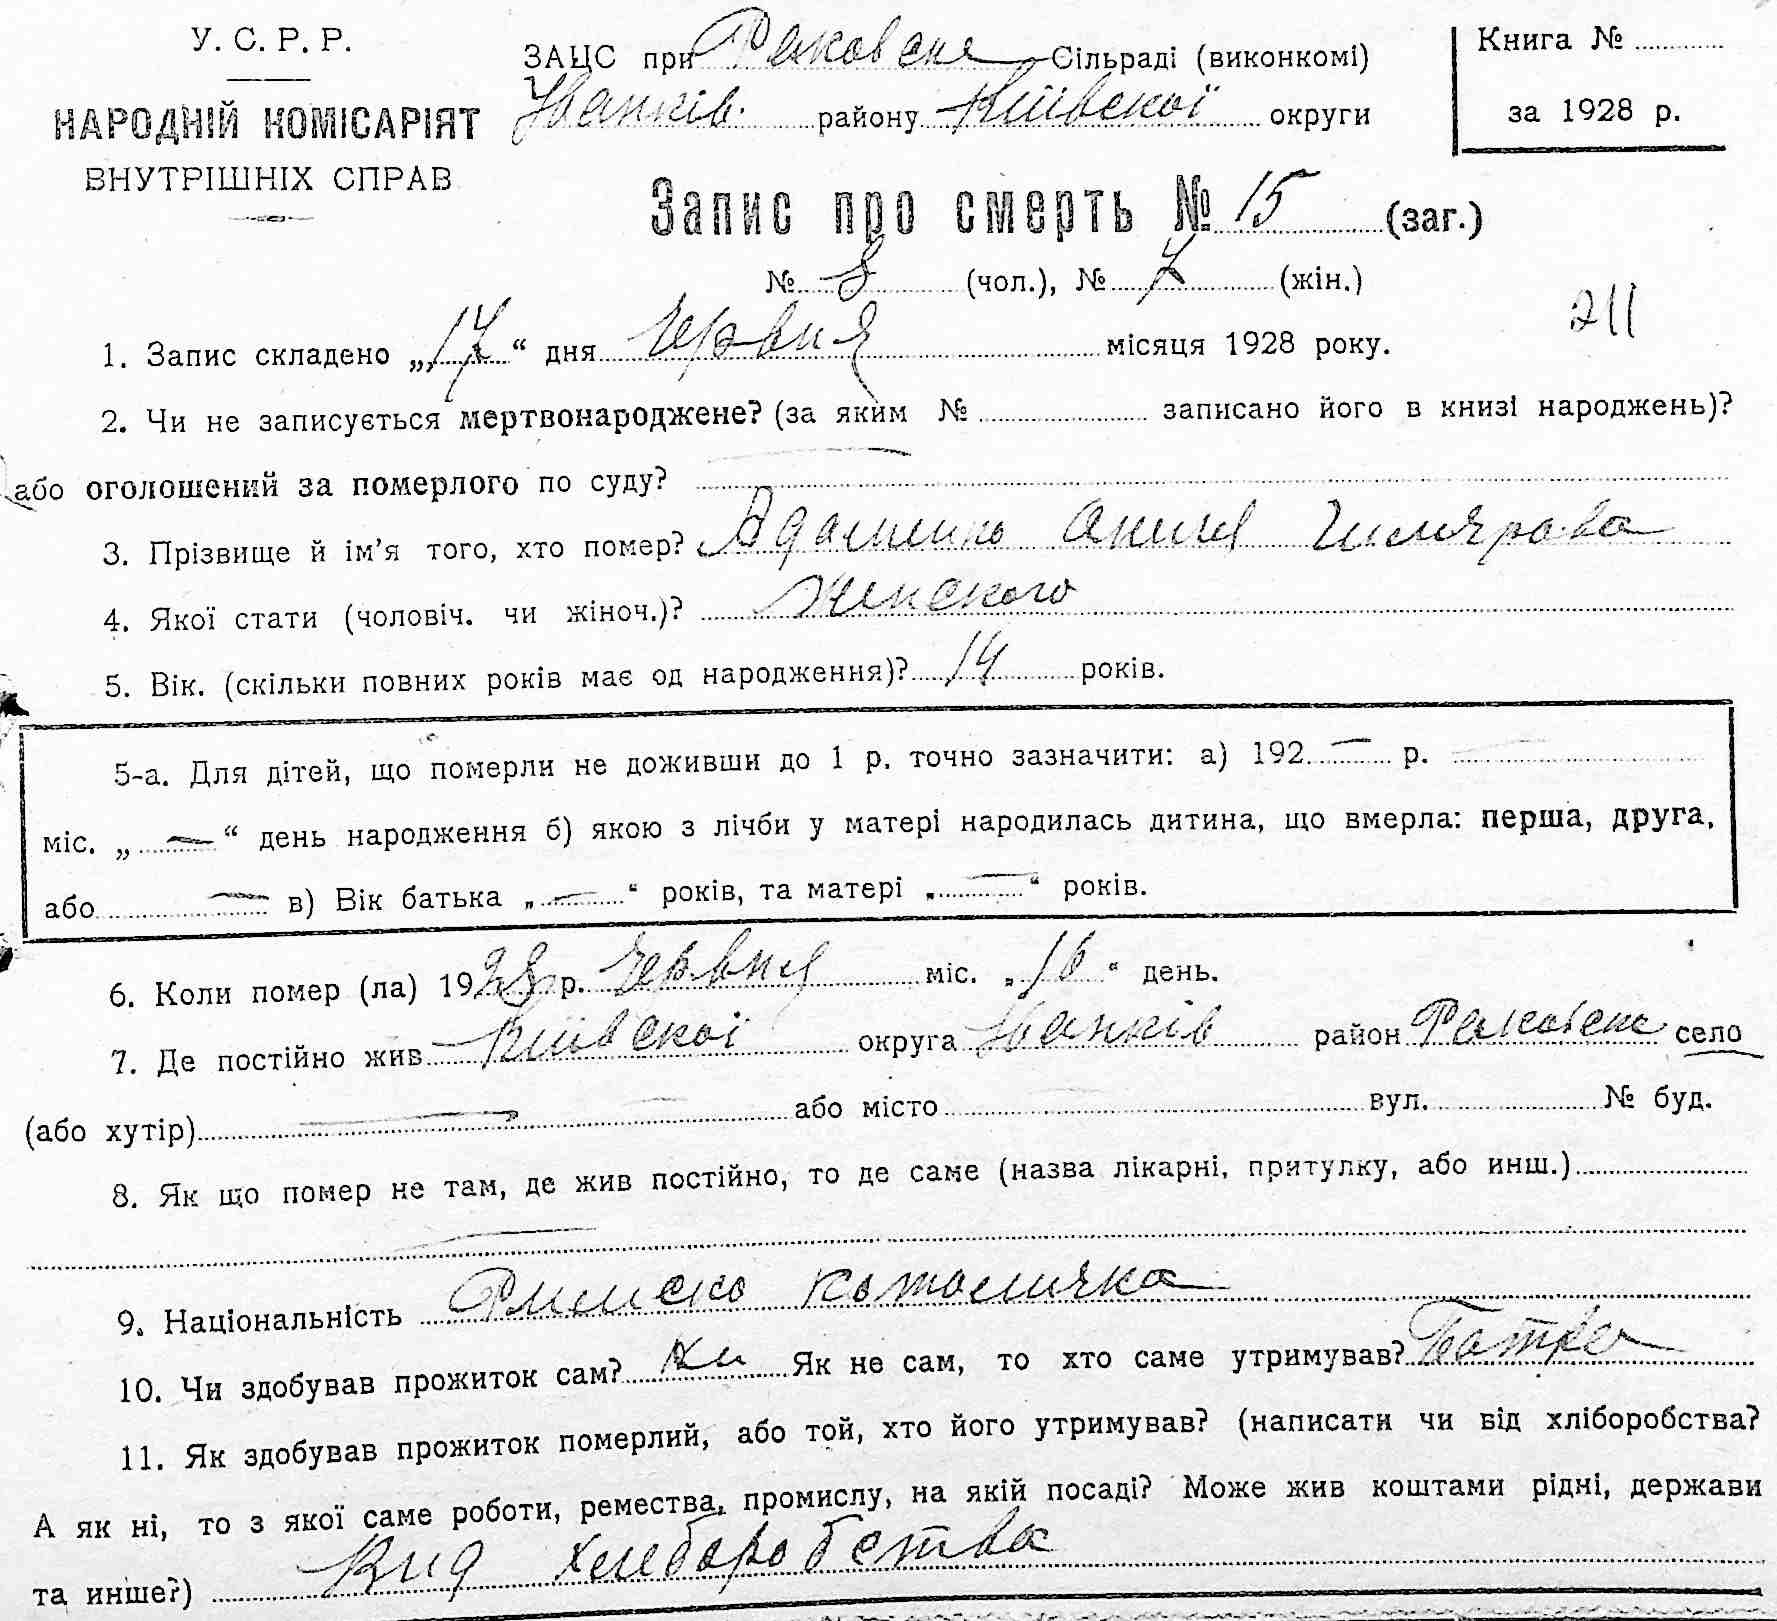 У. С. Р. Р.
НАРОДНІЙ КОМІСАРІЯТ
ВНУТРІШНІХ СПРАВ
ЗАЦС при Раковске Сільраді (виконкомі)
Іванків. району Київскої округи
Книга №
за 1928 р.
Запис про смерть № 15 (заг.)
№ 8 (чол.), № 7 (жін.)
211
1. Запис складено „17“ дня червня місяця 1928 року.
2. Чи не записується мертвонароджене? (за яким № записано його в книзі народжень)?
або оголошений за померлого по суду?
3. Прізвище й ім’я того, хто помер? Адаменко
4. Якої стати (чоловіч. чи жіноч.)? женского
5. Вік. (скільки повних років має од народження)? 14 років.
5-а. Для дітей, що померли не доживши до 1 р. точно зазначити: а) 192 — р. —
міс. „ — “ день народження б) якою з лічби у матері народилась дитина, що вмерла: перша, друга,
або — в) Вік батька „ — “ років, та матері „ — “ років.
6. Коли помер (ла) 1928 р. червня міс. „16“ день.
7. Де постійно жив Київскої округа Іванків район Раковске село
(або хутір) — або місто вул. № буд.
8. Як що помер не там, де жив постійно, то де саме (назва лікарні, притулку, або инш.)
9. Національність Римско католичка
10. Чи здобував прожиток сам? Ни Як не сам, то хто саме утримував? Батько
11. Як здобував прожиток померлий, або той, хто його утримував? (написати чи від хліборобства?
А як ні, то з якої саме роботи, ремества, промислу, на якій посаді? Може жив коштами рідні, держави
та инше?) Вид хлиборобства